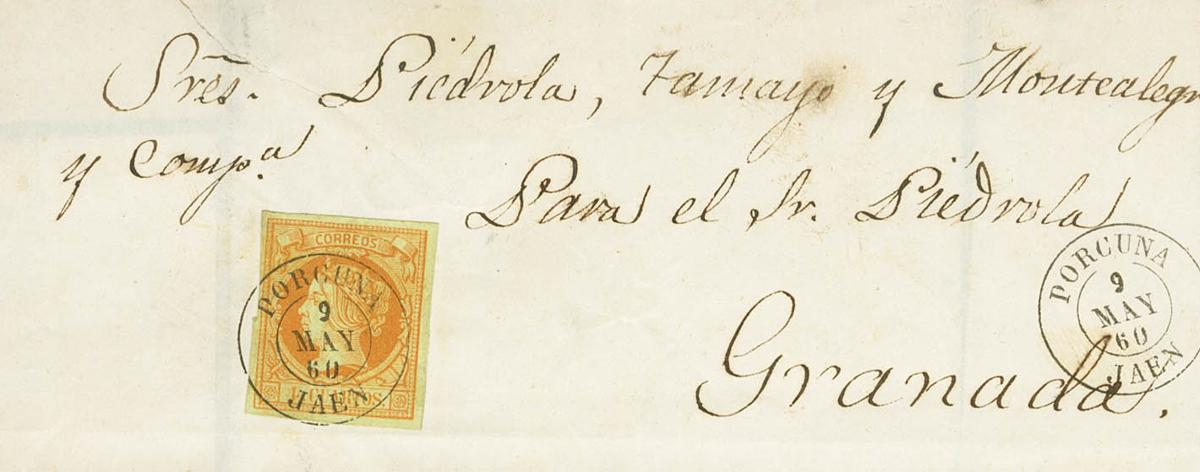 Sres. Piédrola, Tamayo y Montealegr
y Comp.a
Para el Sr. Piédrola
CORREOS
PORCUNA
9
MAY
60
JAEN
CUARTOS.
PORCUNA
9
MAY
60
JAEN
Granada.